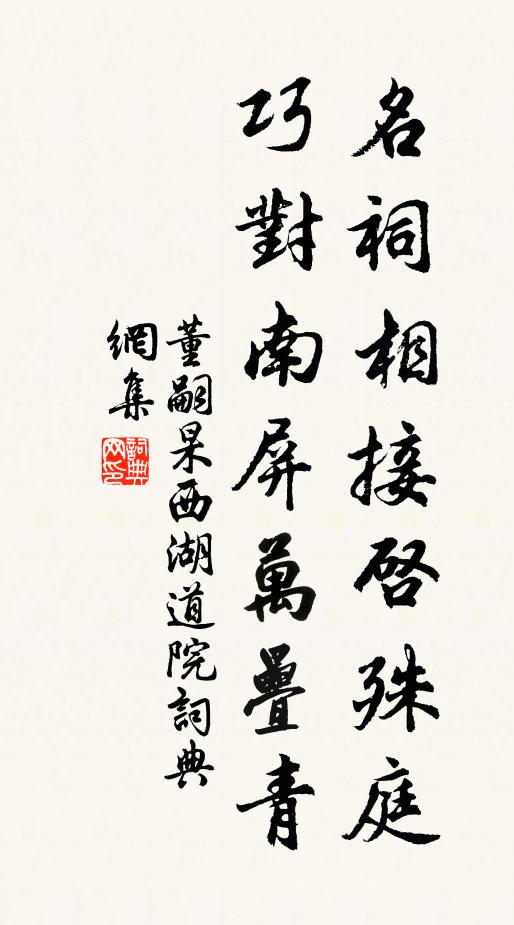 名祠相接啓殊庭
巧對南屏萬疊青
董嗣杲西湖道院詞典
網集
詞典網印